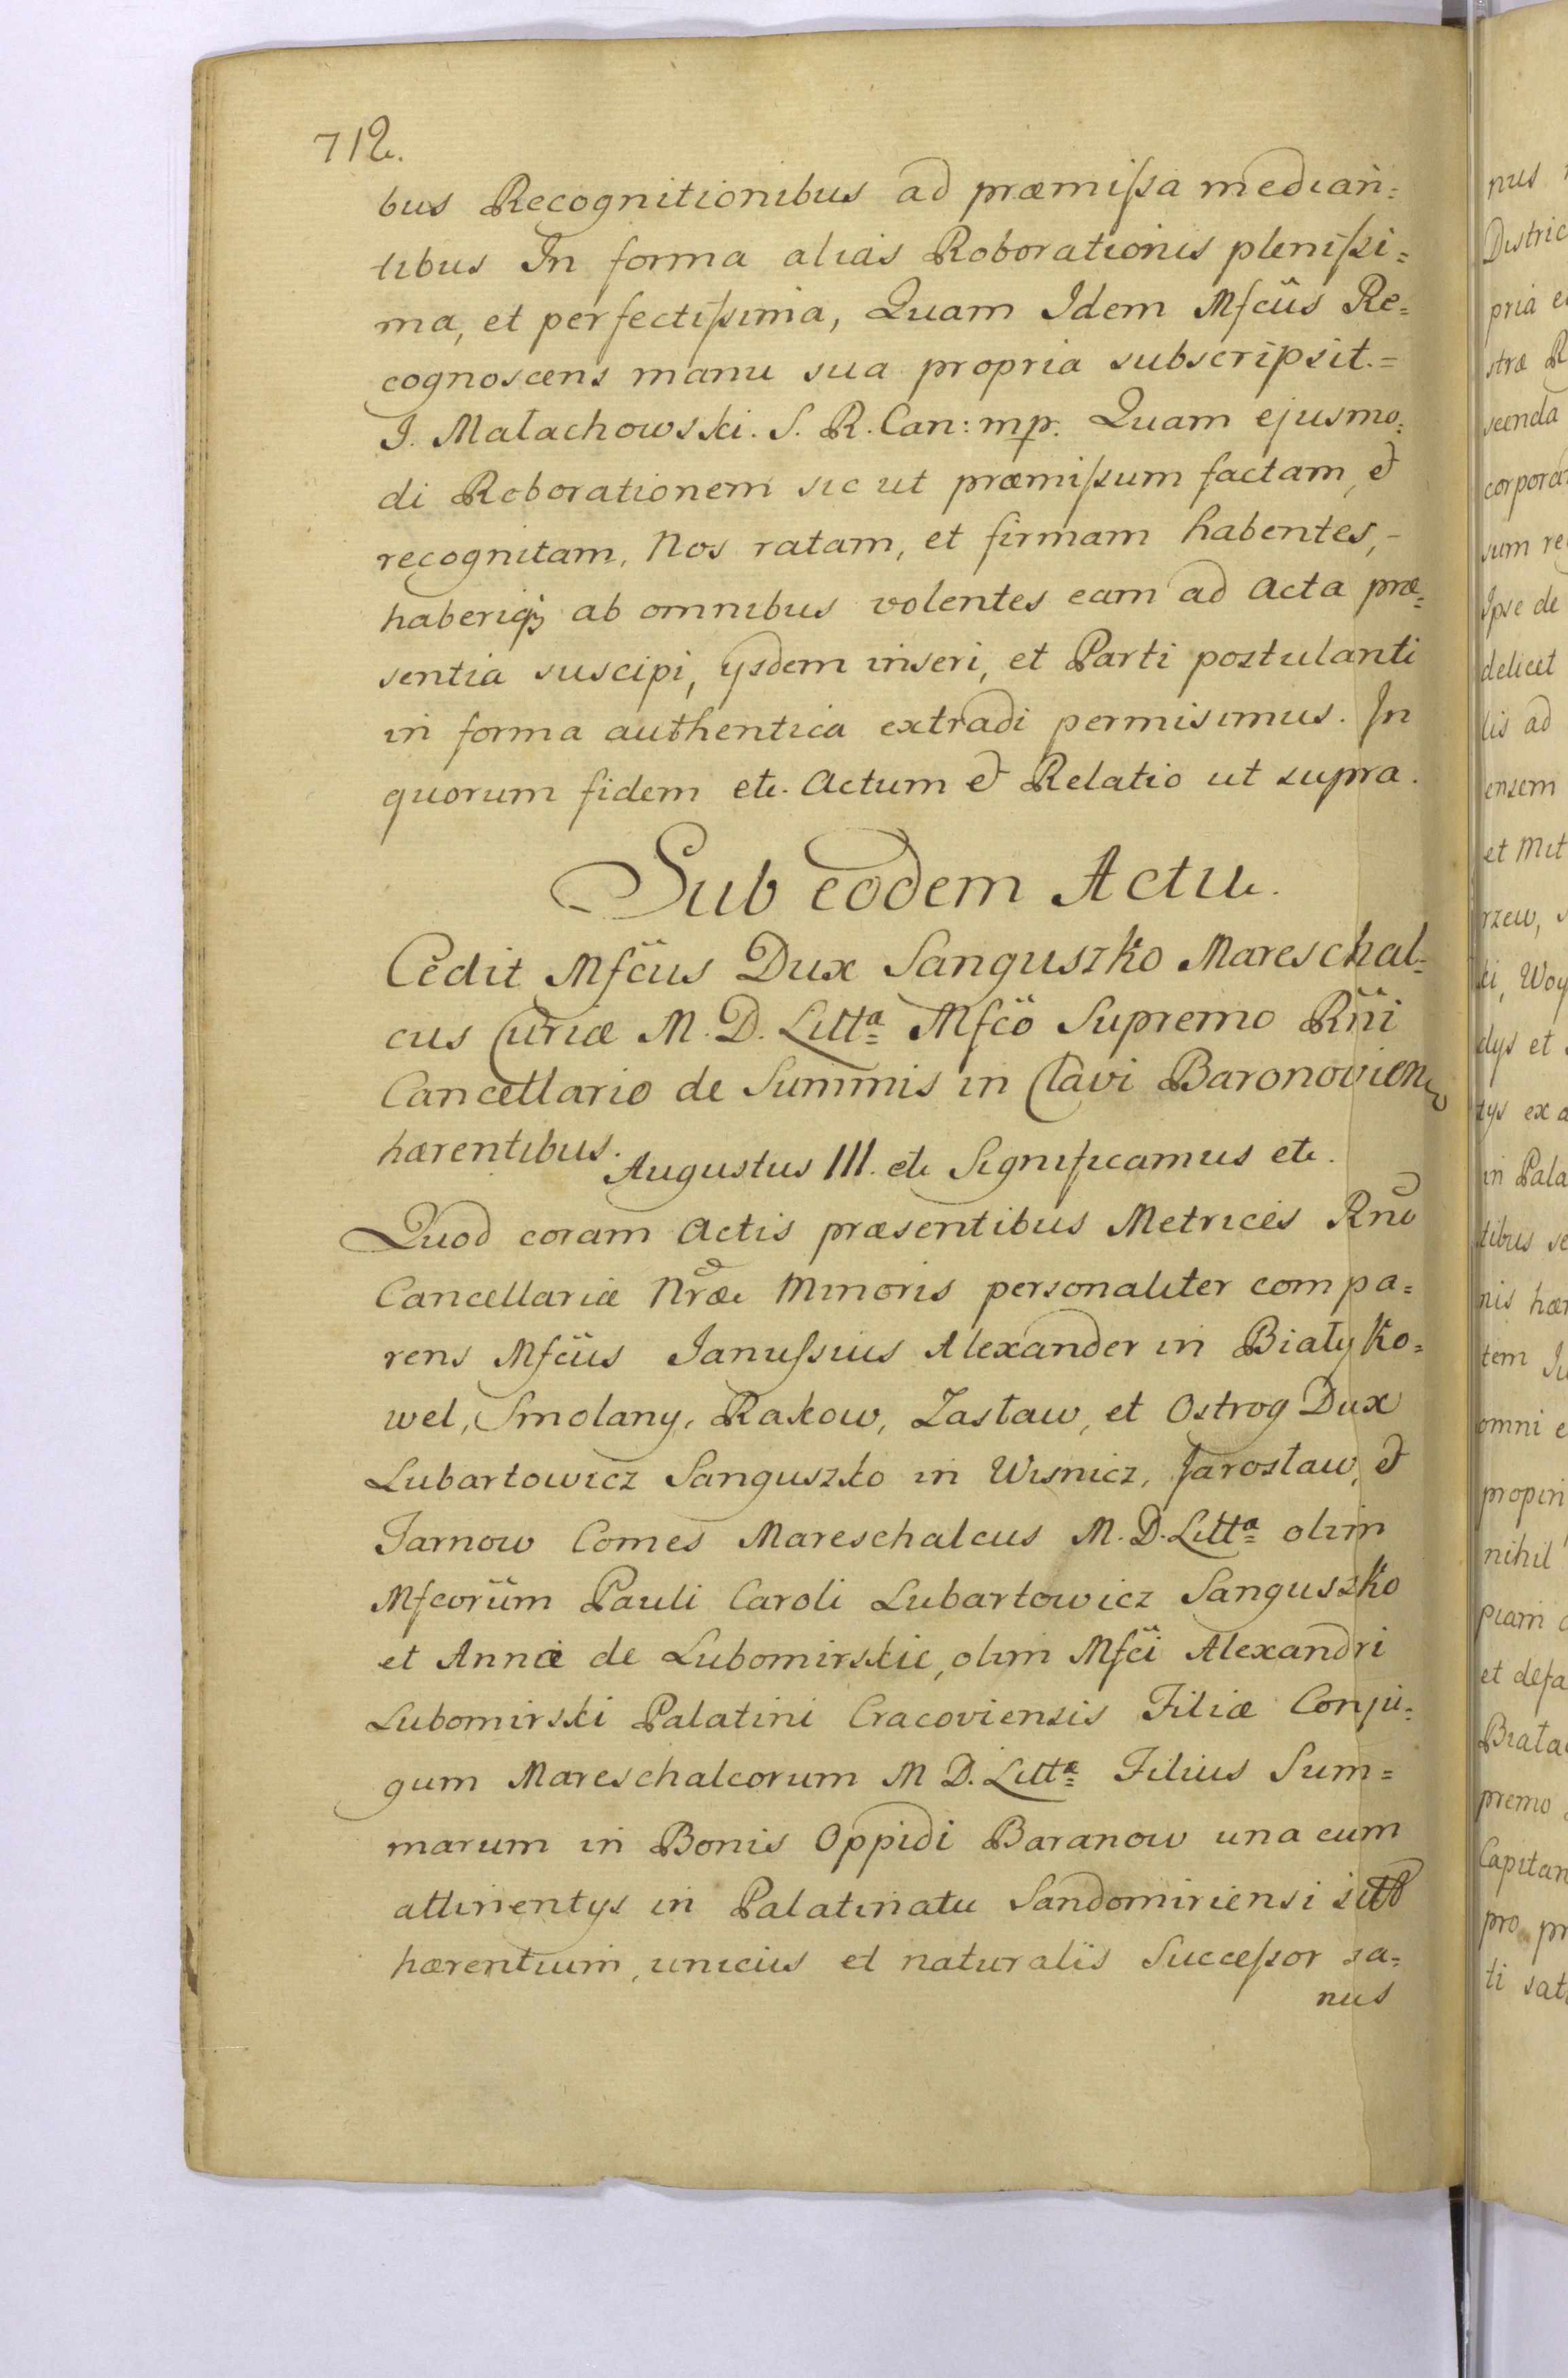 712.
bus Recognitionibus ad præmiſsa median=
tibus In forma alias Roborationis pleniſsi=
ma, et perfectiſsima, Quam Idem Mfcüs Re=
cognoscens manu sua propria subscripsit.=
J. Małachowski. S. R. Can: mp. Quam ejusmo=
di Roborationem sic ut præmiſsum factam, et
recognitam, Nos ratam, et firmam habentes,-
haberiqȝ ab omnibus volentes eam ad Acta præ=
sentia suscipi, ysdem inseri, et Parti postulanti
in forma authentica extradi permisimus. In
quorum fidem etc. Actum et Relatio ut supra.
Sub eodem Actu.
Cedit Mfcüs Dux Sanguszko Mareschal=
cus Curiæ M. D. Litta Mfcö Supremo Rñi
Cancellario de Summis in Clavi Baronovien
hærentibus.
Augustus III. etc Significamus etc.
Quod coram Actis præsentibus Metrices Rni
Cancellariæ Nræ Minoris personaliter compa=
rens Mfcüs Januſsius Alexander in Biały Ko=
wel, Smolany, Rakow, Zasław, et Ostrog Dux
Lubartowicz Sanguszko in Wisnicz, Jarosław, et
Tarnow Comes Mareschalcus M. D. Litta olim
Mfcorüm Pauli Caroli Lubartowicz Sanguszko
et Annæ de Lubomirskie, olim Mfcï Alexandri
Lubomirski Palatini Cracoviensis Filiæ Conju=
gum Mareschalcorum M D. Litta Filius Sum=
marum in Bonis Oppidi Baranow una cum
attinentys in Palatinatu Sandomiriensi sitis
hærentium, unicus et naturalis Succeſsor sa=
nus
pus
Distric
pria e
stræ R
scenda
corpora
sum re
Ipse de
delicet
lis ad
ensem
et Mit
rzew,
ki, Woy
dys et
tys ex a
in Pala
tibus se
nis hær
tem Ju
omni e
propin
nihil
piam
et defa
Brata
premo
Capitan
pro pr
ti sat